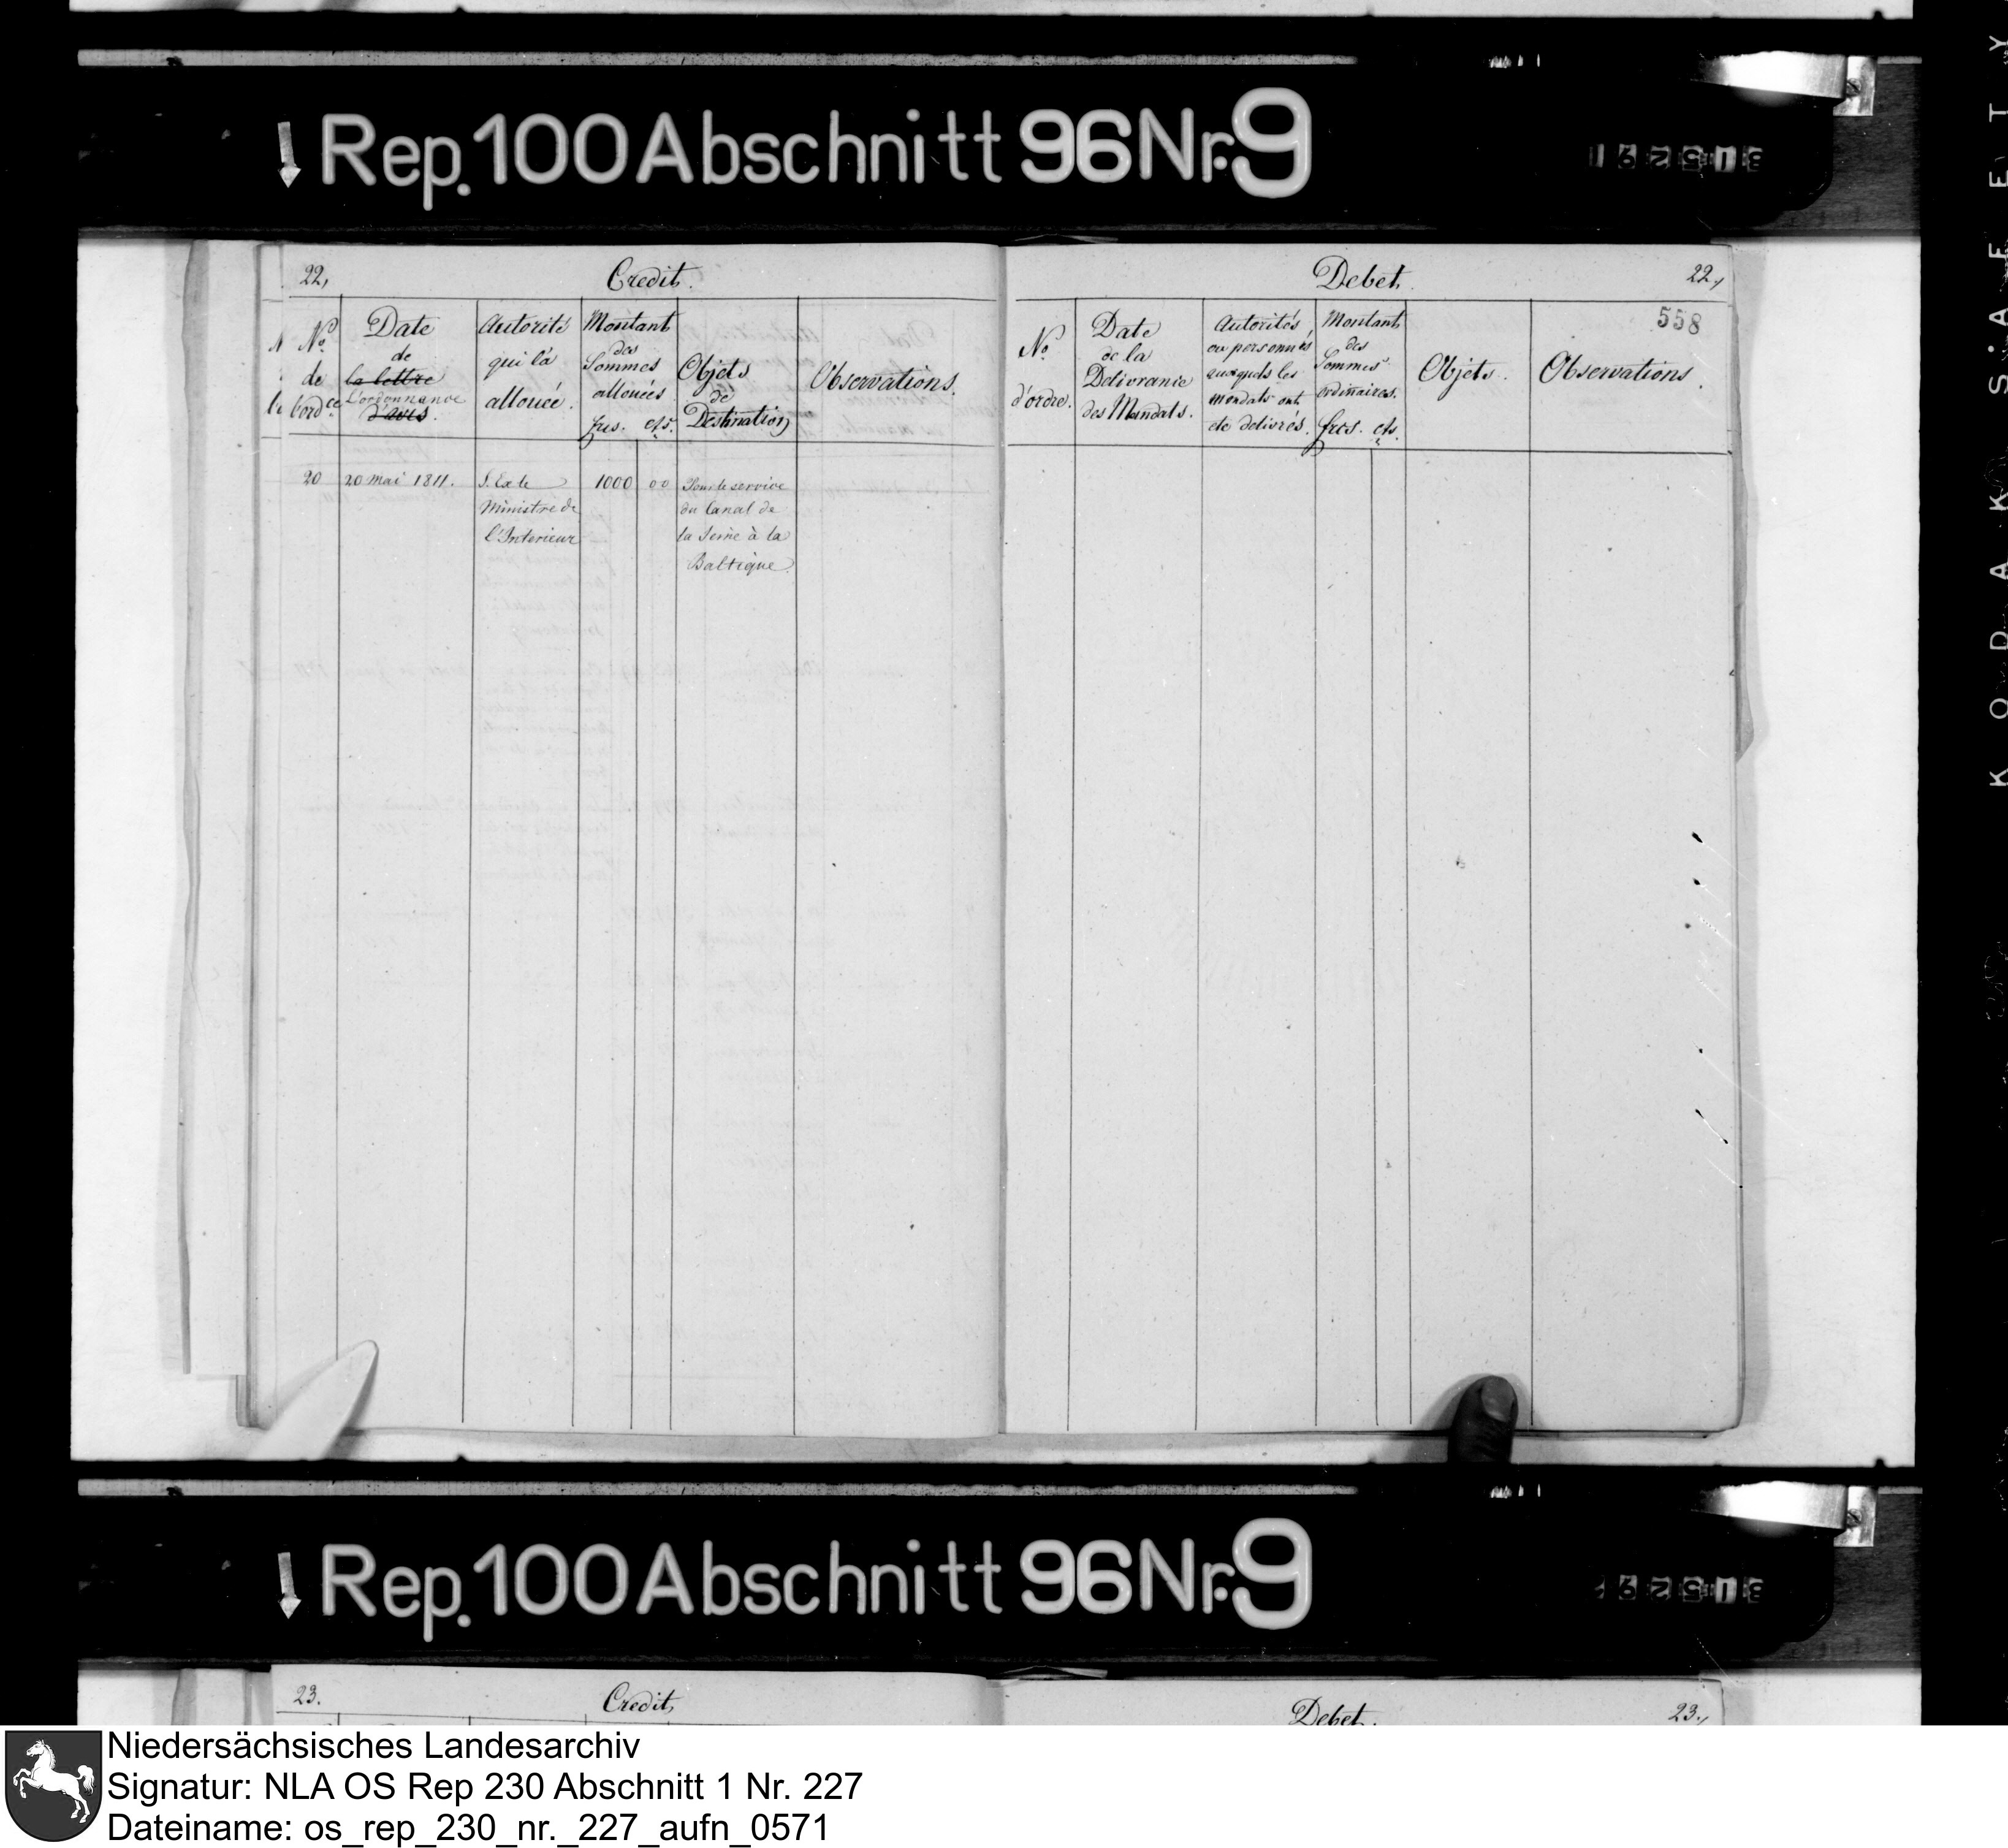 Rep. 100 Abschnitt 96 Nr. 9
22, Credit.
No
de
bord.ce
Date
de
la lettre
L'ordonnance
d'avis.
Autorité
qui l'a
allouée.
Montant
des
Sommes
allouées
frs. cts.
Objets
de
Destination
Observations.
20 20 mai 1811. S. Ex le 1000 00 Pour le service
Ministre de du Canal de
l'Interieur la Seine à la
Baltique.
Debet. 22,
558
No
d'ordre.
Date
de la
Delivrance
des Mandats.
Autorités,
ou personnes
auxquels les
mandats ont
ete delivrés.
Montant
des
Sommes
ordinaires.
frcs. cts.
Objets.
Observations.
Rep. 100 Abschnitt 96 Nr. 9
23. Credit,
Debet. 23.,
KODAK SAFETY
Niedersächsisches Landesarchiv
Signatur: NLA OS Rep 230 Abschnitt 1 Nr. 227
Dateiname: os_rep_230_nr._227_aufn_0571